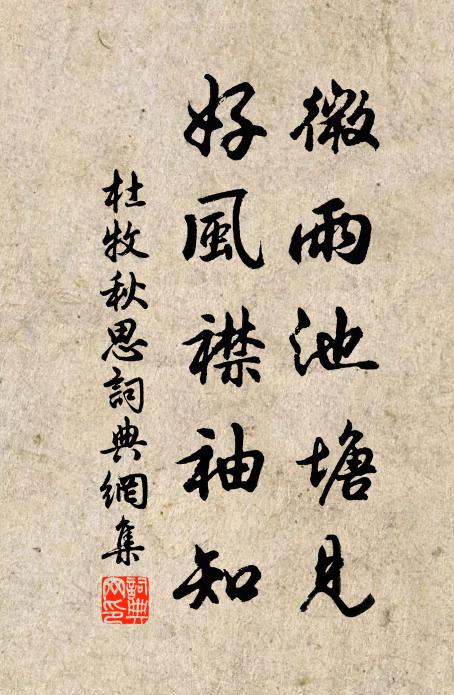 微雨池塘見
好風襟袖知
杜牧秋思詞典網集
詞典網印